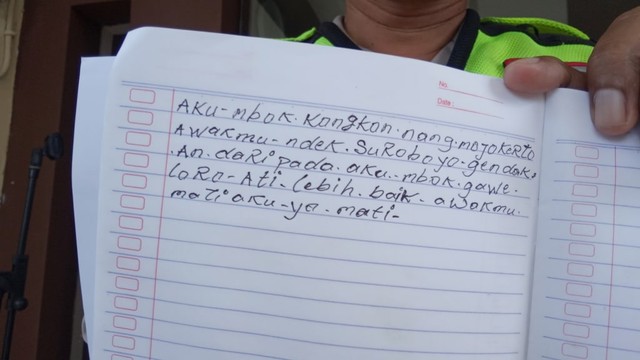 No.
Date:
AKU-mbok.Kongkon.nang.MOJOKERTO
AwaKmu-ndek.SuRoboyo-gendak²
.An.daRipada.aku.mbok.gawe.
loRo-Ati-lebih.baik.awakmu.
mati aKu-ya-mati-